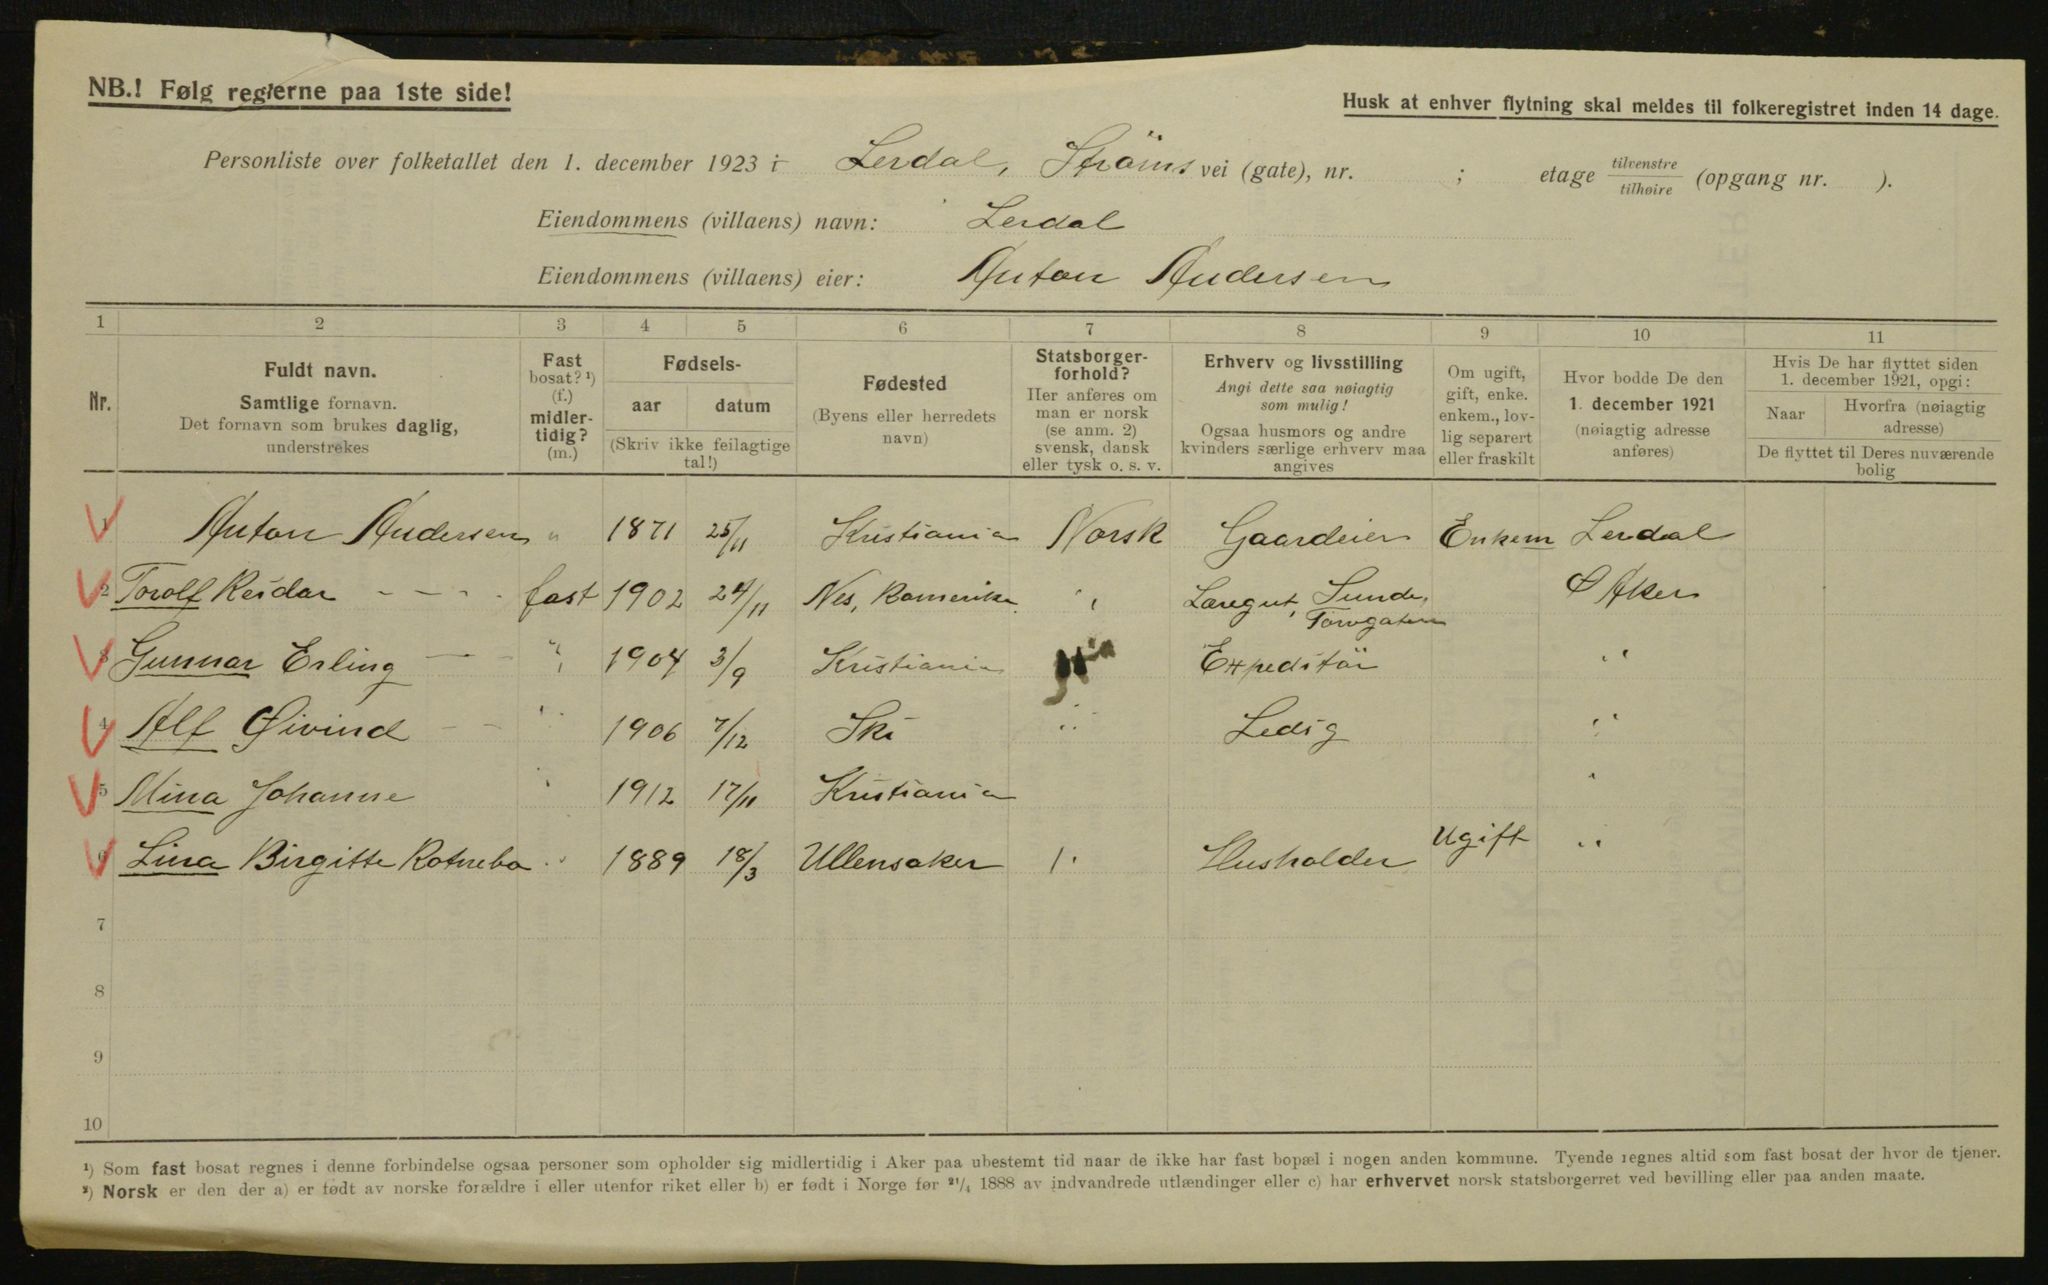 NB.! Følg reglerne paa 1ste side!
Husk at enhver flytning skal meldes til folkeregistret inden 14 dage.
Personliste over folketallet den 1. december 1923 i Lerdal, Strøms vei (gate), nr. ; etage tilvenstre / tilhøire (opgang nr. ).
Eiendommens (villaens) navn: Lerdal
Eiendommens (villaens) eier: Anton Andersen
1 2 3 4 5 6 7 8 9 10 11
Nr.
Fuldt navn.
Samtlige fornavn.
Det fornavn som brukes daglig,
understrekes
Fast
bosat? ¹)
(f.)
midler-
tidig?
(m.)
Fødsels-
aar datum
(Skriv ikke feilagtige
tal!)
Fødested
(Byens eller herredets
navn)
Statsborger-
forhold?
Her anføres om
man er norsk
(se anm. 2)
svensk, dansk
eller tysk o. s. v.
Erhverv og livsstilling
Angi dette saa nøiagtig
som mulig!
Ogsaa husmors og andre
kvinders særlige erhverv maa
angives
Om ugift,
gift, enke.
enkem., lov-
lig separert
eller fraskilt
Hvor bodde De den
1. december 1921
(nøiagtig adresse
anføres)
Hvis De har flyttet siden
1. december 1921, opgi:
Naar
Hvorfra (nøiagtig
adresse)
De flyttet til Deres nuværende
bolig
1 Anton Andersen " 1871 25/11 Kristiania Norsk Gaardeier Enkem Lerdal
2 Torolf Reidar - - - - fast 1902 24/11 Nes, Romerike " Læregut, Sunde, Torvgaten Ø Aker
3 Gunnar Erling - - " 1904 3/9 Kristiania Expeditør "
4 Alf Øivind - - " 1906 7/12 Ski " Ledig "
5 Mina Johanne " 1912 17/11 Kristiania "
6 Lina Birgitte Kotnebo " 1889 18/3 Ullensaker " Husholder Ugift "
7
8
9
10
¹) Som fast bosat regnes i denne forbindelse ogsaa personer som opholder sig midlertidig i Aker paa ubestemt tid naar de ikke har fast bopæl i nogen anden kommune. Tyende regnes altid som fast bosat der hvor de tjener.
²) Norsk er den der a) er født av norske forældre i eller utenfor riket eller b) er født i Norge før ²¹/₄ 1888 av indvandrede utlændinger eller c) har erhvervet norsk statsborgerret ved bevilling eller paa anden maate.